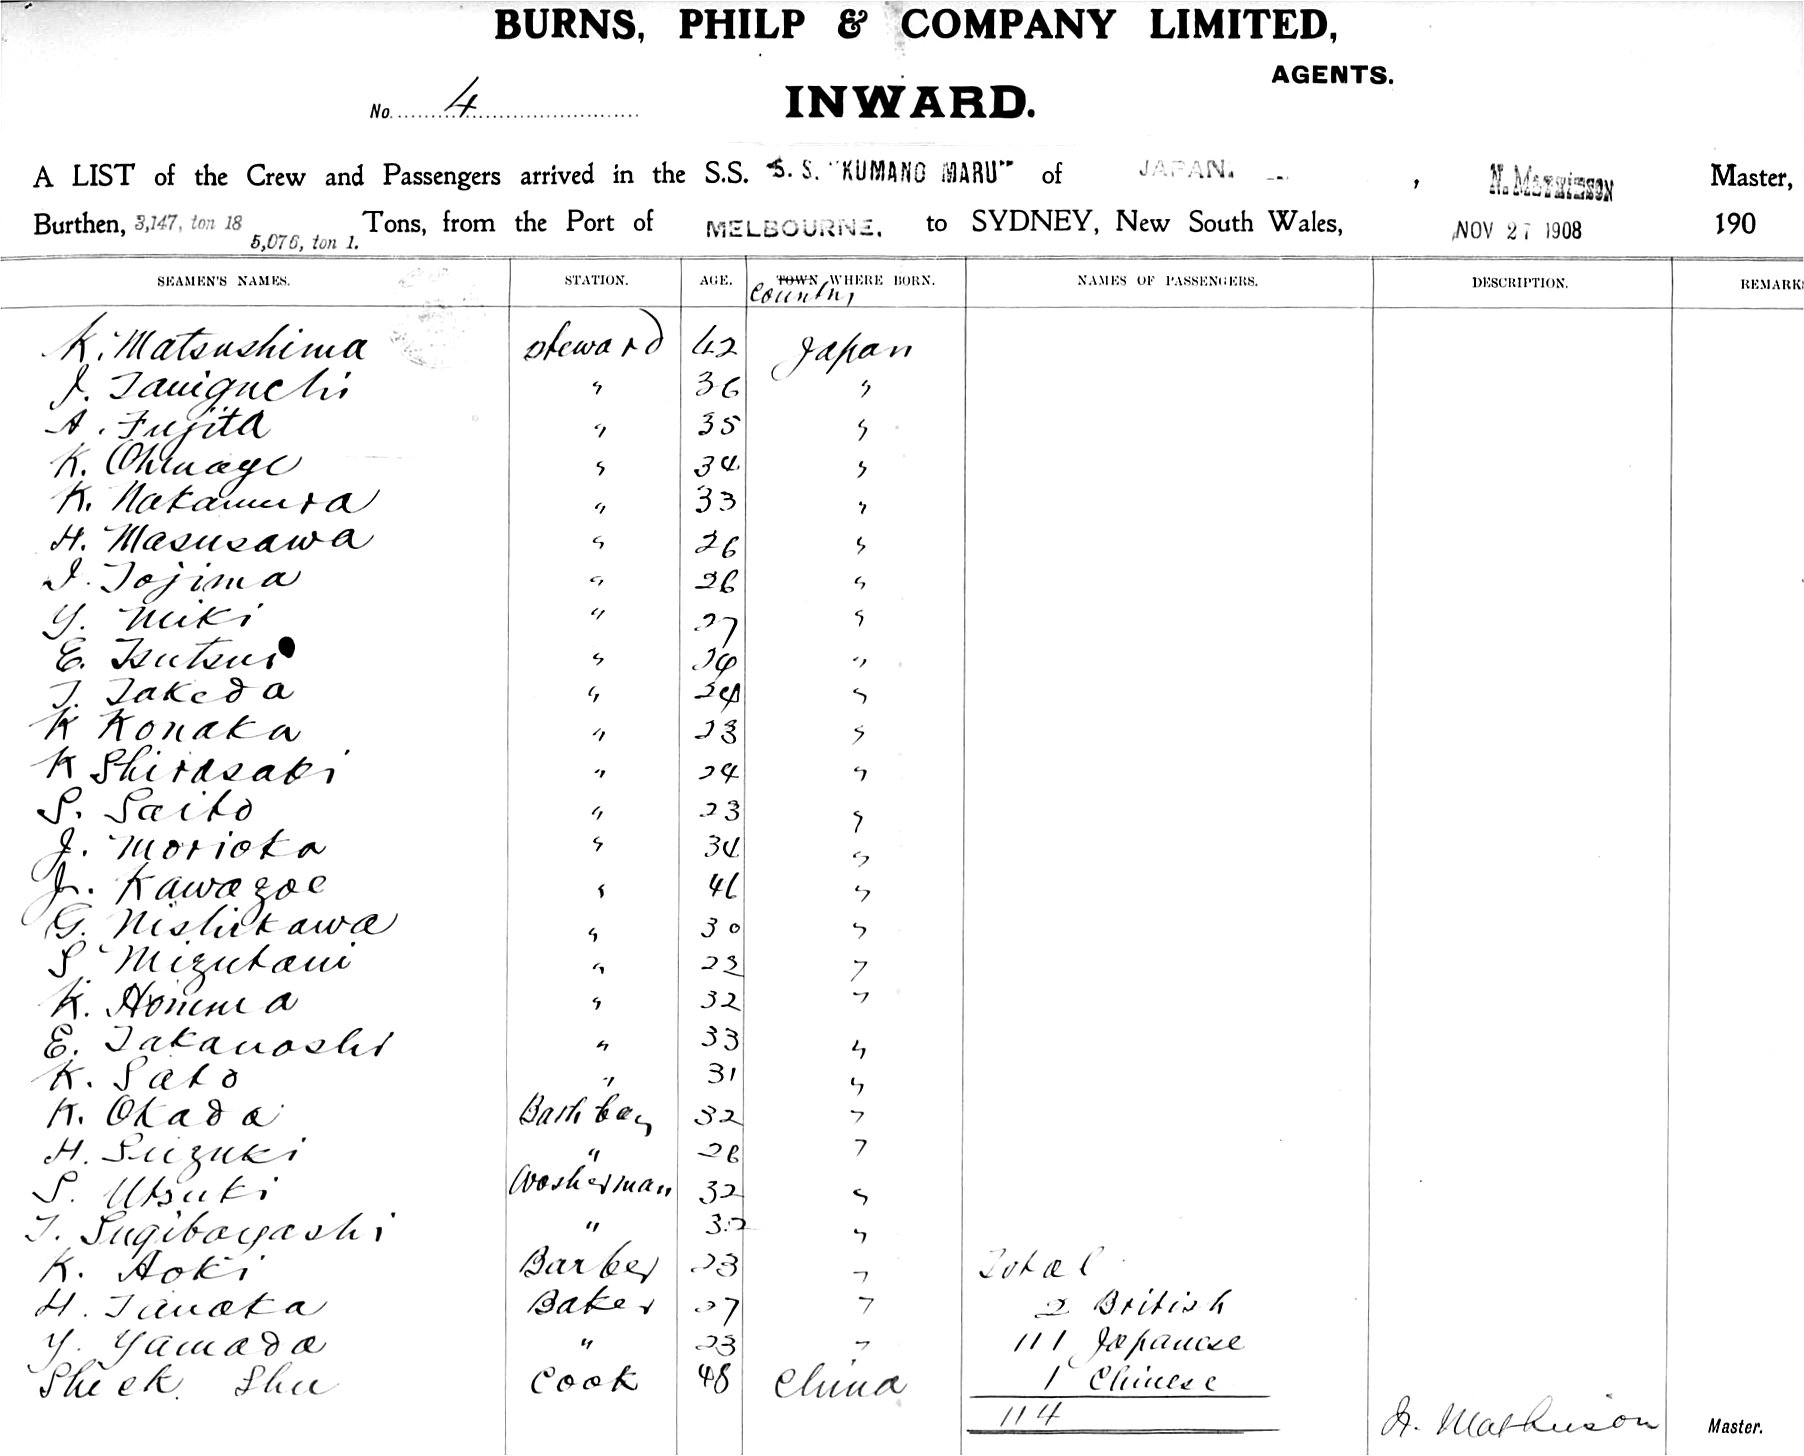 BURNS, PHILP & COMPANY LIMITED,
AGENTS.
No. 4
INWARD.
A LIST of the Crew and Passengers arrived in the S.S. S. S. "KUMANO MARU" of JAPAN. , N. MATHIESON Master,
Burthen, 3,147, ton 18 5,076, ton 1. Tons, from the Port of MELBOURNE. to SYDNEY, New South Wales, NOV 27 1908 190
SEAMEN'S NAMES. STATION. AGE. TOWN WHERE BORN. NAMES OF PASSENGERS. DESCRIPTION. REMARKS
Country
K. Matsushima steward 42 Japan
J. Taniguchi " 36 "
A. Fujita " 35 "
K. Ohwage " 34 "
K. Nakamura " 33 "
H. Masusawa " 26 "
I. Tojima " 26 "
Y. Miki " 27 "
E. Tsutsui " 24 "
T. Takeda " 24 "
K Konaka " 23 "
K Shirasaki " 24 "
S. Saito " 23 "
J. Morioka " 34 "
J. Kawazoe " 46 "
G. Nishikawa " 30 "
S Mizutani " 23 "
K. Homma " 32 "
E. Takanoshi " 33 "
K. Sato " 31 "
K. Okada Bath boy 32 "
H. Suzuki " 26 "
S. Utsuki Washerman 32 "
T. Sugibayashi " 32 "
K. Aoki Barber 23 " Total
H. Tanaka Baker 27 " 2 British
Y. Yamada " 23 " 111 Japanese
Sheek Shu Cook 48 China 1 Chinese
114 N. Mathieson Master.